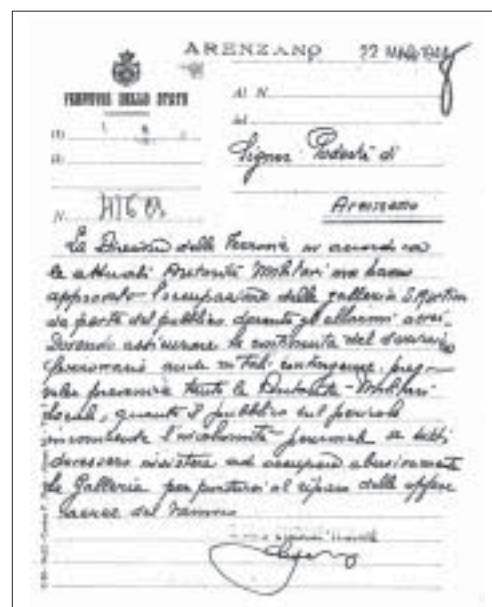 ARENZANO 22 MAG 1944
FERROVIE DELLO STATO
Al N.
del
(1)
(2)
Signor Podestà di
Arenzano
N.
La Direzione delle Ferrovie in accordo con
le attuali Autorità Militari non hanno
approvato l'occupazione della galleria S. Martino
da parte del pubblico durante gli allarmi aerei.
Dovendo assicurare la continuità del servizio
ferroviario anche in tali contingenze, pre-
prevenire tanto le Autorità Militari
locali, quanto il pubblico sul pericolo
incombente l'incolumità personale se tutti
dovessero insistere ad occupare abusivamente
la Galleria per portarsi al riparo dalle offese
aeree del nemico